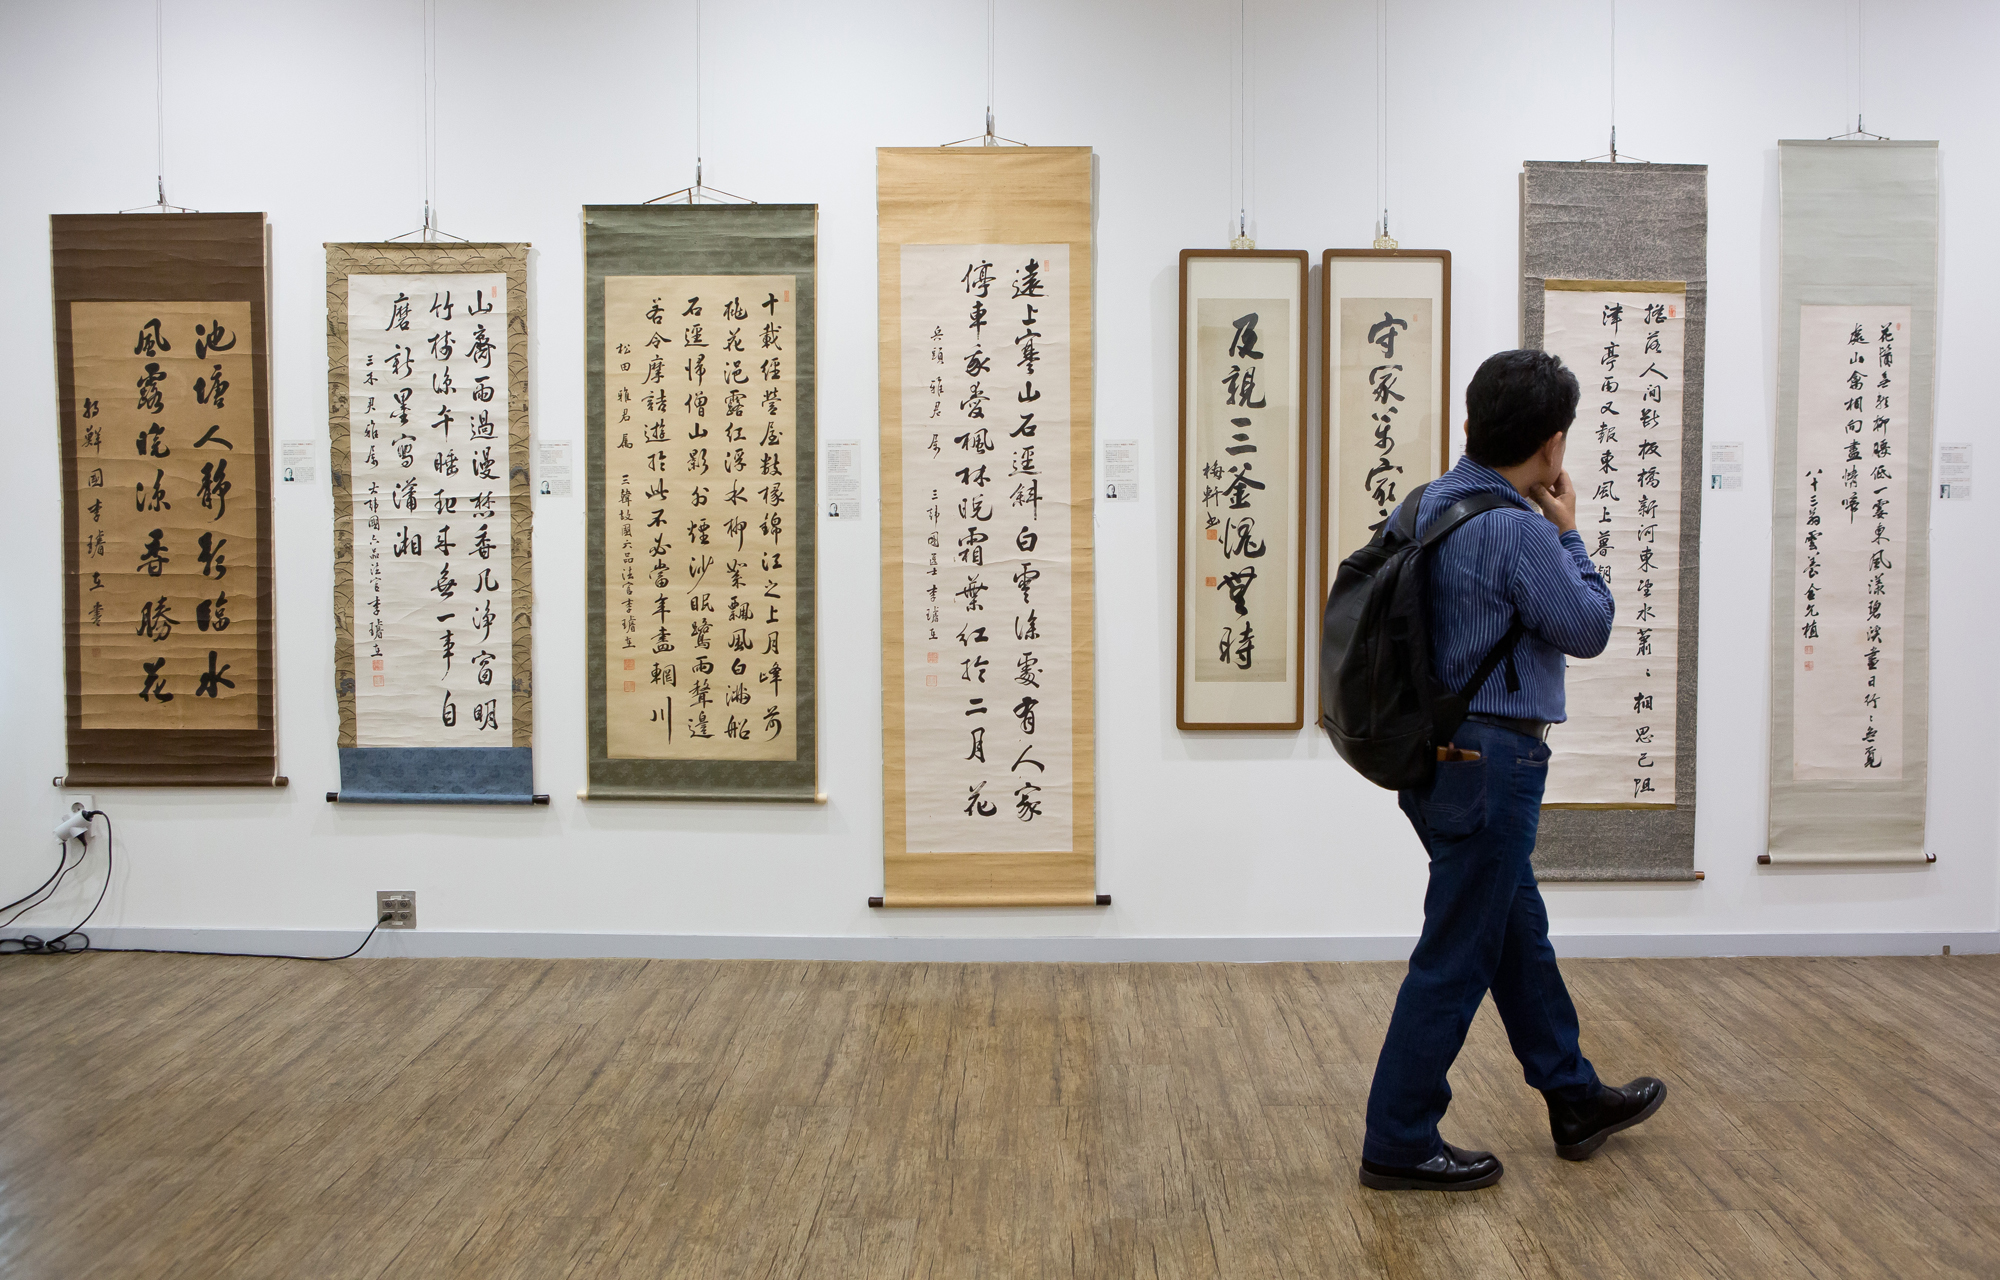 池塘人靜影臨水
風露晚涼香勝花
朝鮮國李璿在書
山齋雨過漫焚香几淨窗明
竹樹涼午睡起來無一事自
磨新墨寫瀟湘
三木君雅屬 大韓國六品法官李璿在
十載經營屋數椽錦江之上月峰前
桃花浥露紅浮水柳絮飄風白滿船
石逕歸僧山影外煙沙眠鷺雨聲邊
若令摩詰遊於此不必當年畫輞川
松田雅君屬 三韓故國六品法官李璿在
遠上寒山石逕斜白雲深處有人家
停車坐愛楓林晚霜葉紅於二月花
兵頭雅君屬 三韓國医士李璿在
及親三釜愧無時
梅軒書
守冢萬家
搖落人間斷板橋新河東望水蕭〻相思已阻
津亭雨又報東風上暮潮
花 影柳腰低一霎東風漾碧溪盡日行〻無覓
處山禽相向盡情啼
八十三翁雲養金允植